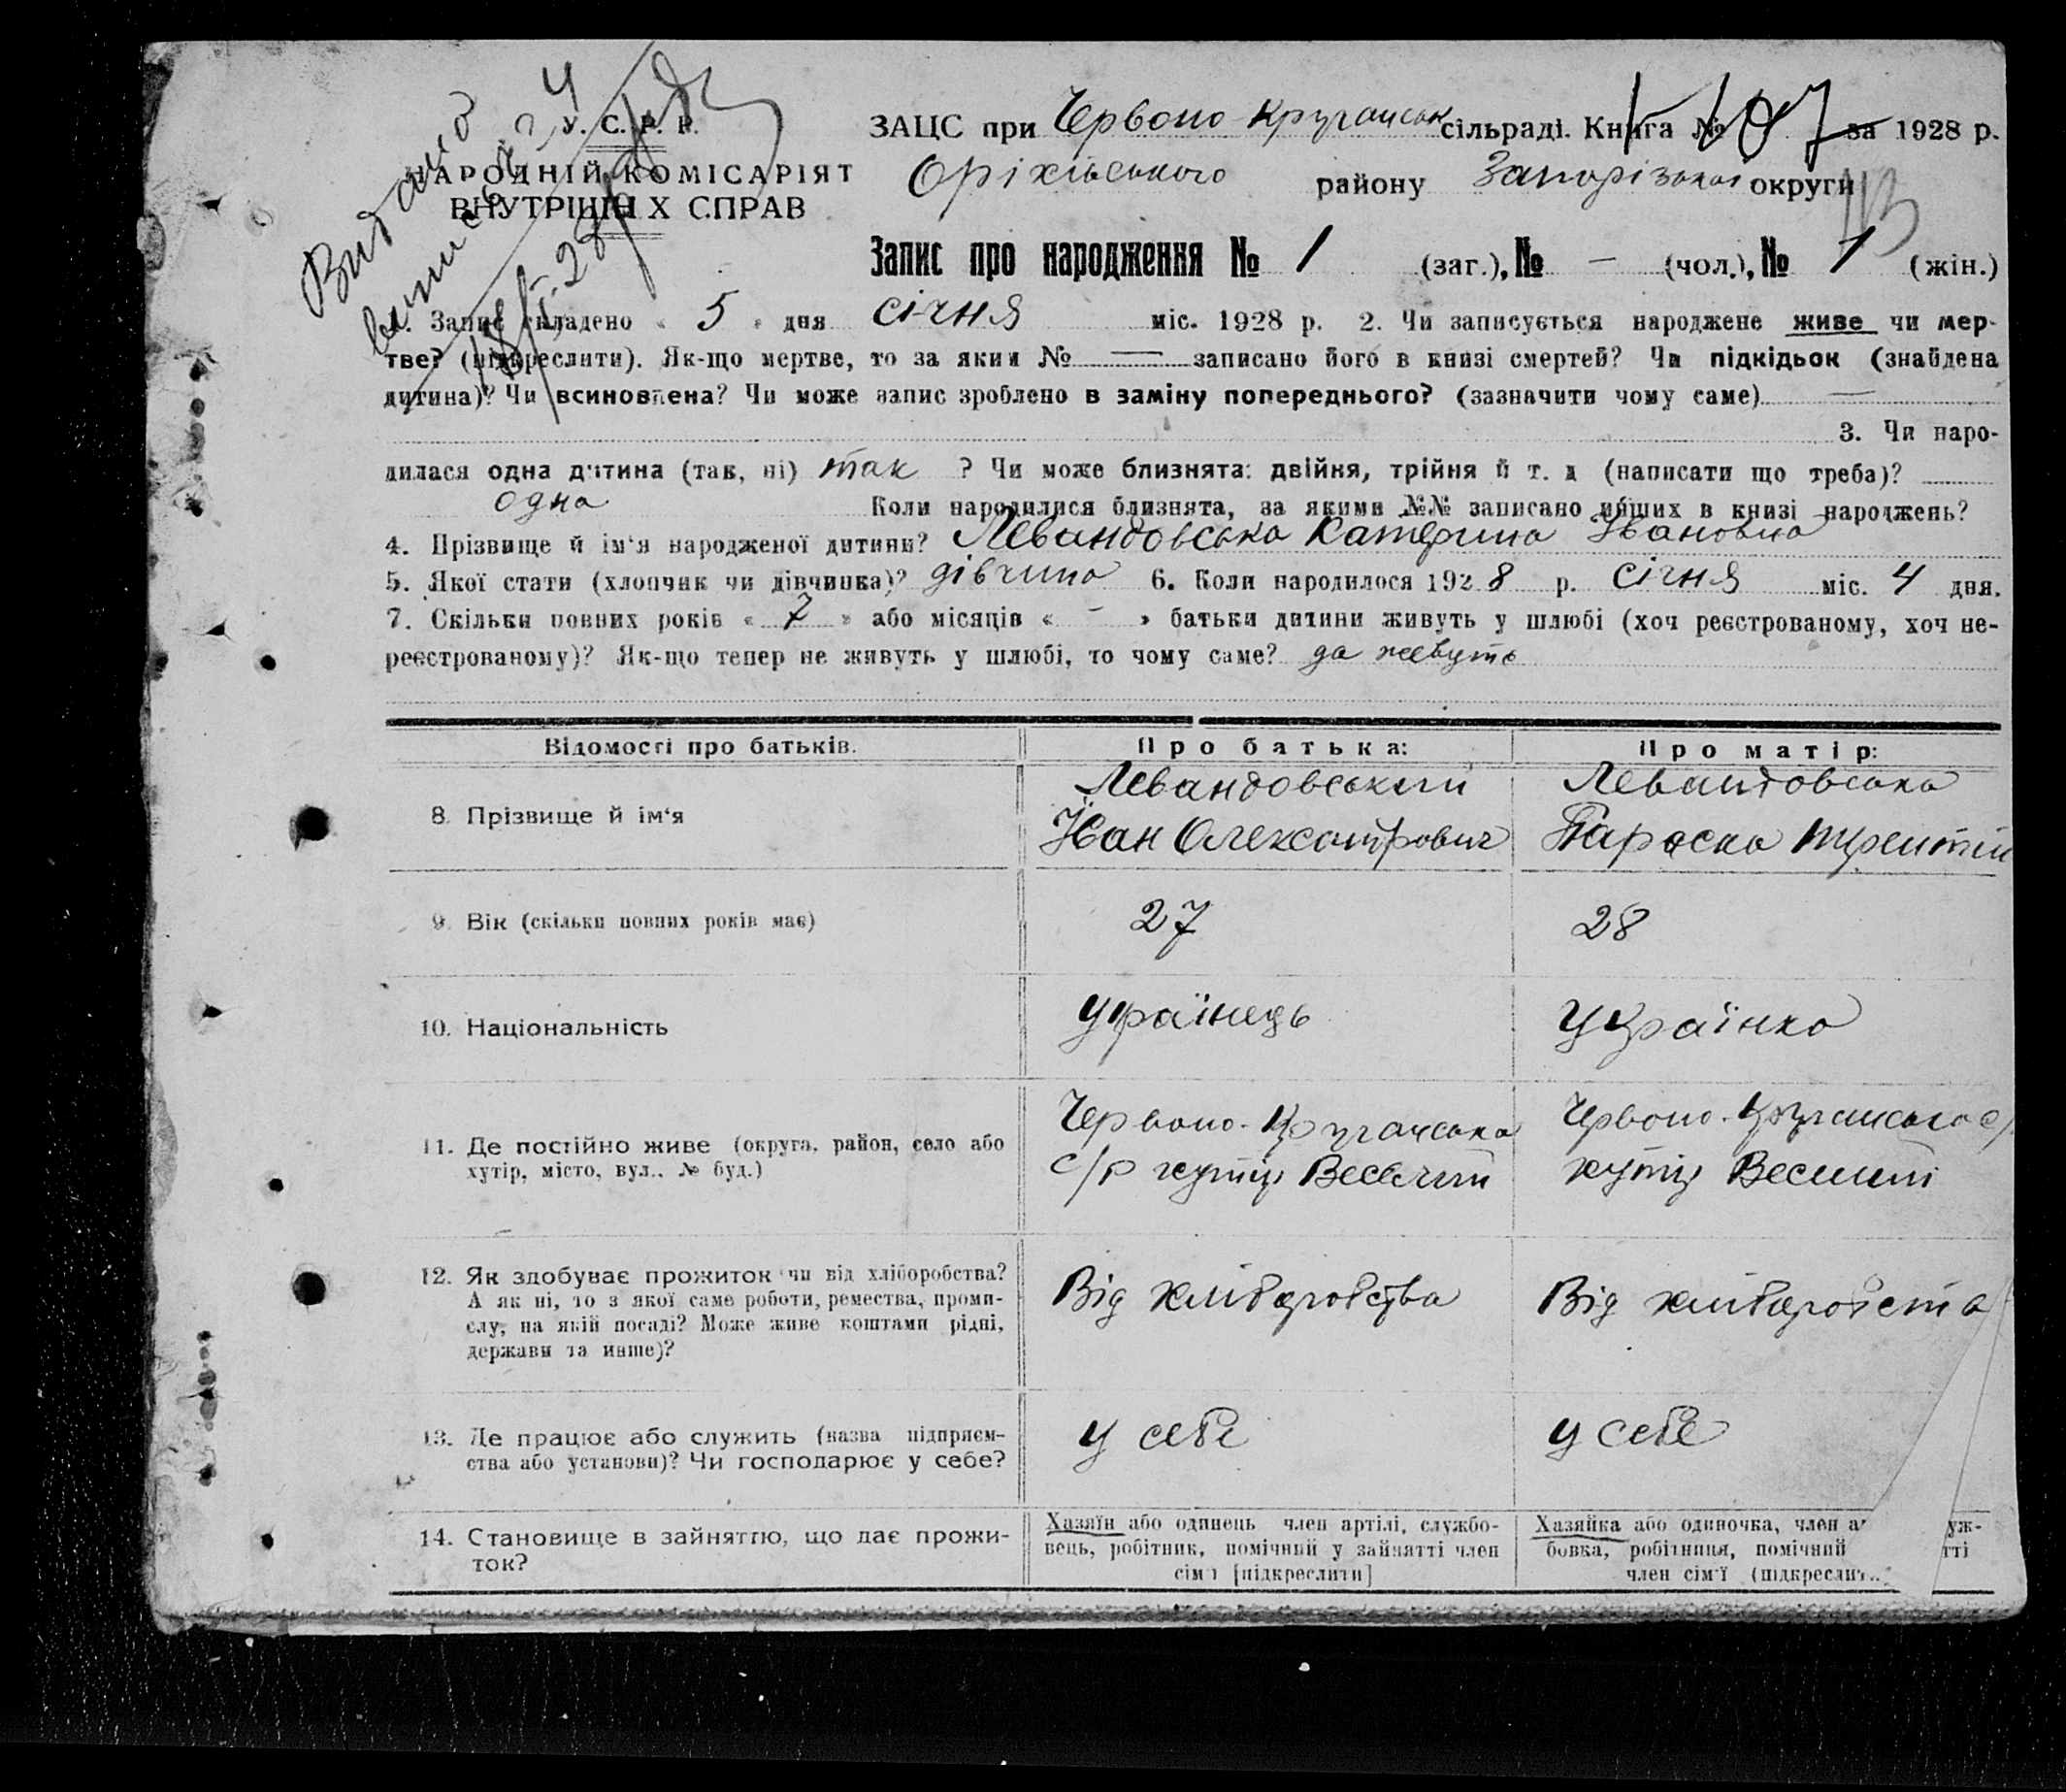 Видано
виписку
У. С. Р. Р.
НАРОДНІЙ КОМІСАРІЯТ
ВНУТРІШНІХ СПРАВ
ЗАЦС при Червоно-Круганськ сільраді. Книга № за 1928 р.
Оріхівського району Запорізької округи
Запис про народження № 1 (заг.), № – (чол.), № 1 (жін.)
1. Запис складено « 5 » дня січня міс. 1928 р. 2. Чи записується народжене живе чи мер-
тве? (підкреслити). Як-що мертве, то за яким № — записано його в книзі смертей? Чи підкідьок (знайдена
дитина)? Чи всиновлена? Чи може запис зроблено в заміну попереднього? (зазначити чому саме) —
3. Чи наро-
дилася одна дитина (так, ні) так ? Чи може близнята: двійня, трійня й т. д (написати що треба)?
одна Коли народилися близнята, за якими №№ записано инших в книзі народжень?
4. Прізвище й ім'я народженої дитини? Левандовська Катерина Івановна
5. Якої стати (хлопчик чи дівчинка)? дівчина 6. Коли народилося 1928 р. січня міс. 4 дня.
7. Скільки повних років « 7 » або місяців « - » батьки дитини живуть у шлюбі (хоч реєстрованому, хоч не-
реєстрованому)? Як-що тепер не живуть у шлюбі, то чому саме? да живуть
Відомості про батьків. Про батька: Про матір:
8. Прізвище й ім'я Левандовський Левандовська
Іван Олександрович Параска
9. Вік (скільки повних років має) 27 28
10. Національність українець Українка
11. Де постійно живе (округа, район, село або Червоно-Круганська Червоно-Круганська с/
хутір, місто, вул., № буд.) с/р хутір хутір
12. Як здобуває прожиток чи від хліборобства? Від хліборобства Від хліборобста
А як ні, то з якої саме роботи, ремества, проми-
слу, на якій посаді? Може живе коштами рідні,
держави та инше)?
13. Де працює або служить (назва підприєм- у себе у себе
ства або установи)? Чи господарює у себе?
14. Становище в зайняттю, що дає прожи- Хазяїн або одинець член артілі, службо- Хазяйка або одиночка, член а уж-
ток? вець, робітник, помічний у зайнятті член бовка, робітниця, помічний тті
сім'ї [підкреслити] член сім'ї (підкреслит